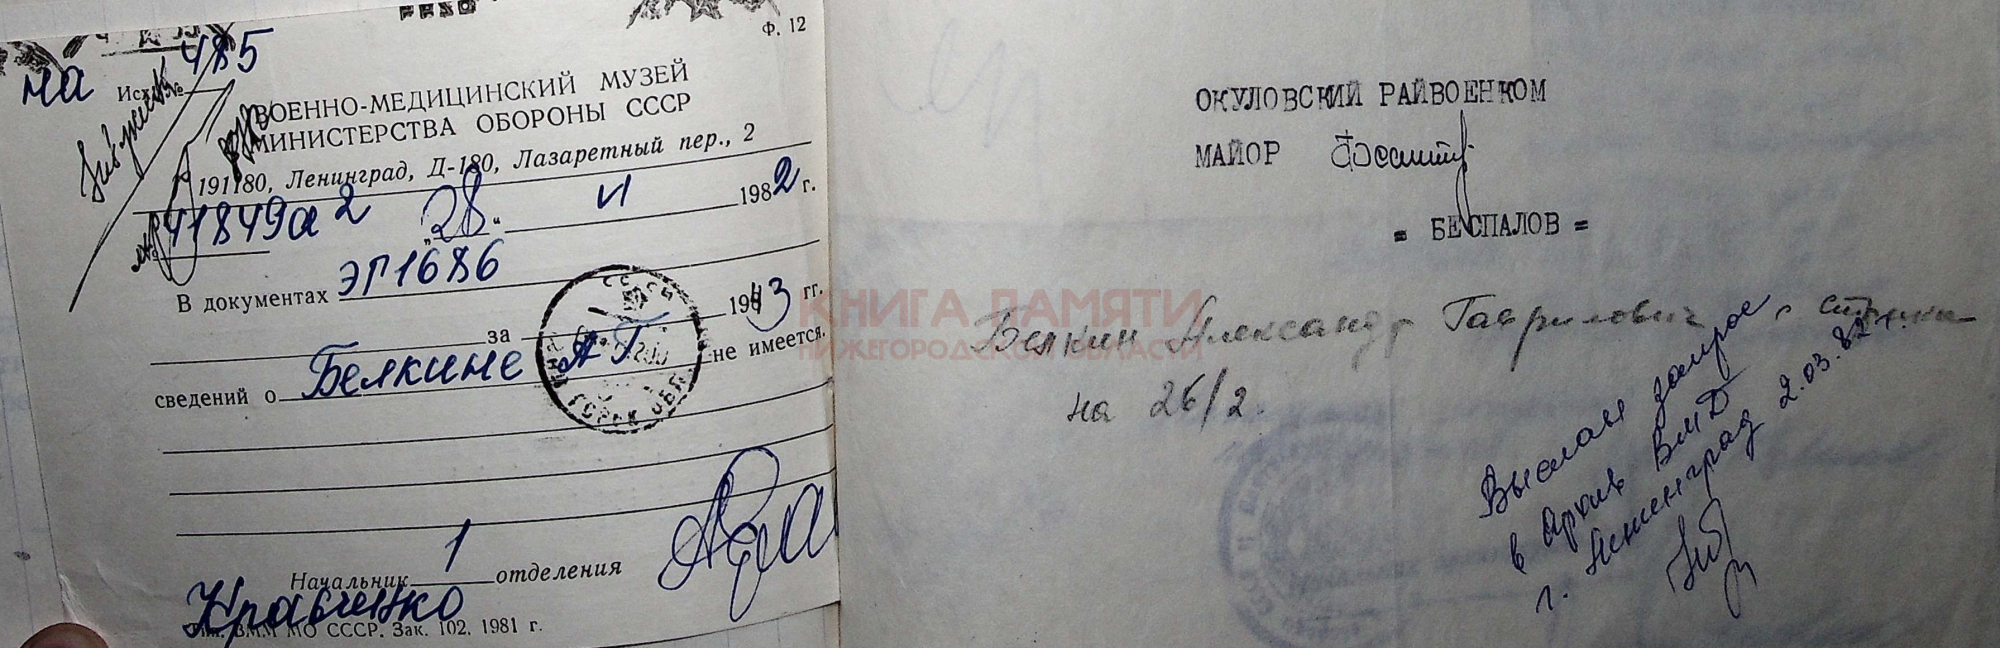 Ф. 12
на Исх. № 485
ВОЕННО-МЕДИЦИНСКИЙ МУЗЕЙ
МИНИСТЕРСТВА ОБОРОНЫ СССР
191180, Ленинград, Д-180, Лазаретный пер., 2
41849а2 „28“ 1982 г.
В документах ЭГ1686
за 1943 гг.
сведений о Белкине А Г не имеется.
Начальник 1 отделения
Кравченко
ВММ МО СССР. Зак. 102. 1981 г.
ОКУЛОВСКИЙ РАЙВОЕНКОМ
МАЙОР
= БЕСПАЛОВ =
КНИГА ПАМЯТИ
НИЖЕГОРОДСКОЙ ОБЛАСТИ
Белкин Александр Гаврилович
на 26/2.
Выслали запрос
в Архив ВМД
г. Ленинград 2.03.82 г.